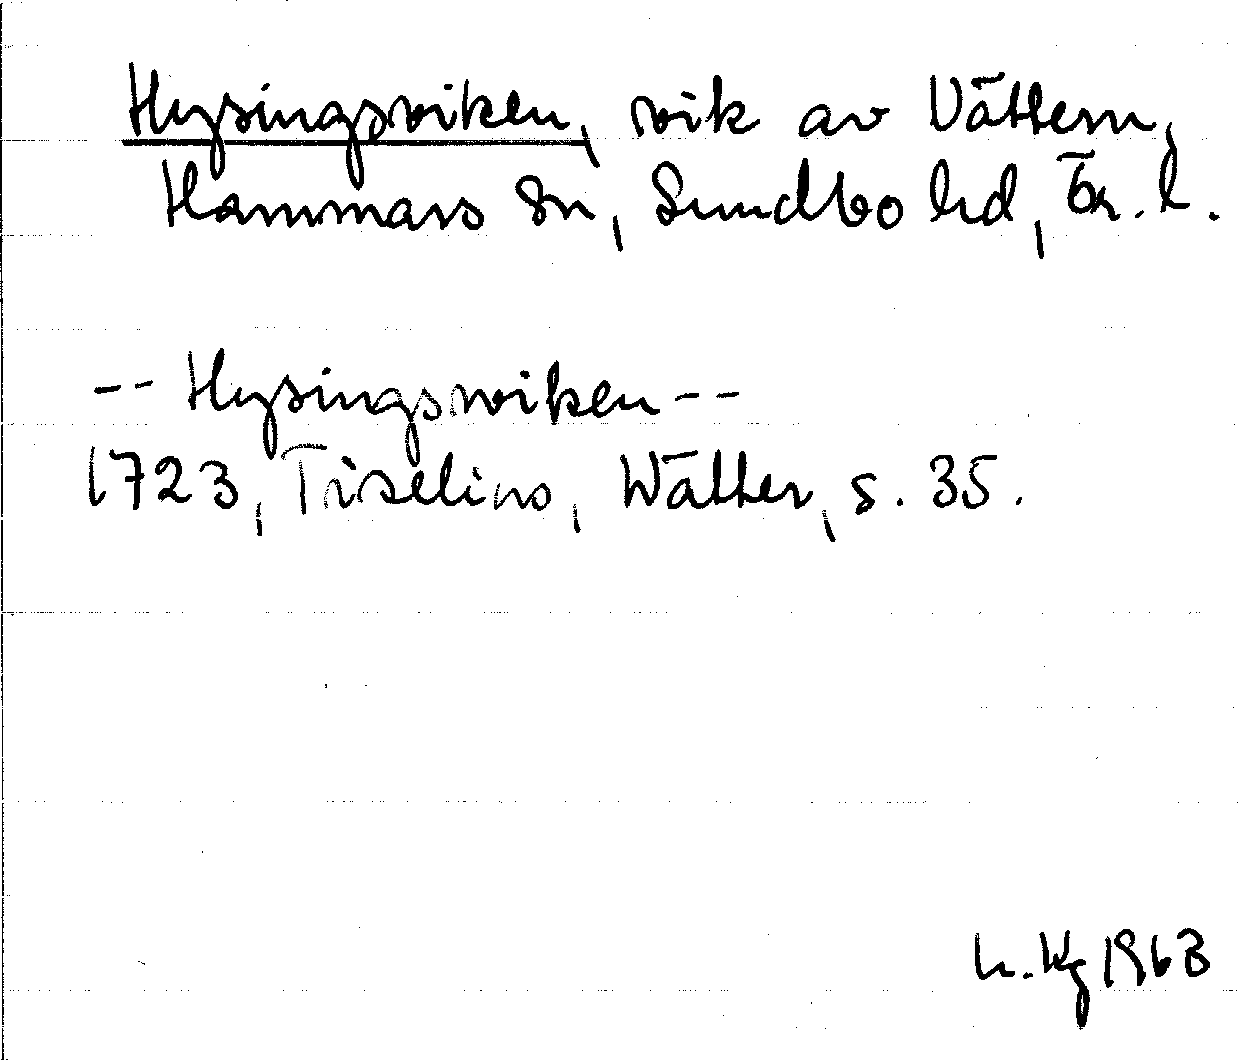 Hysingsviken, vik av Vättern,
Hammars sn, Sundbo hd, Ör. l.
-- Hysingswiken --
1723, Tiselius, Wätter, s. 35.
1963